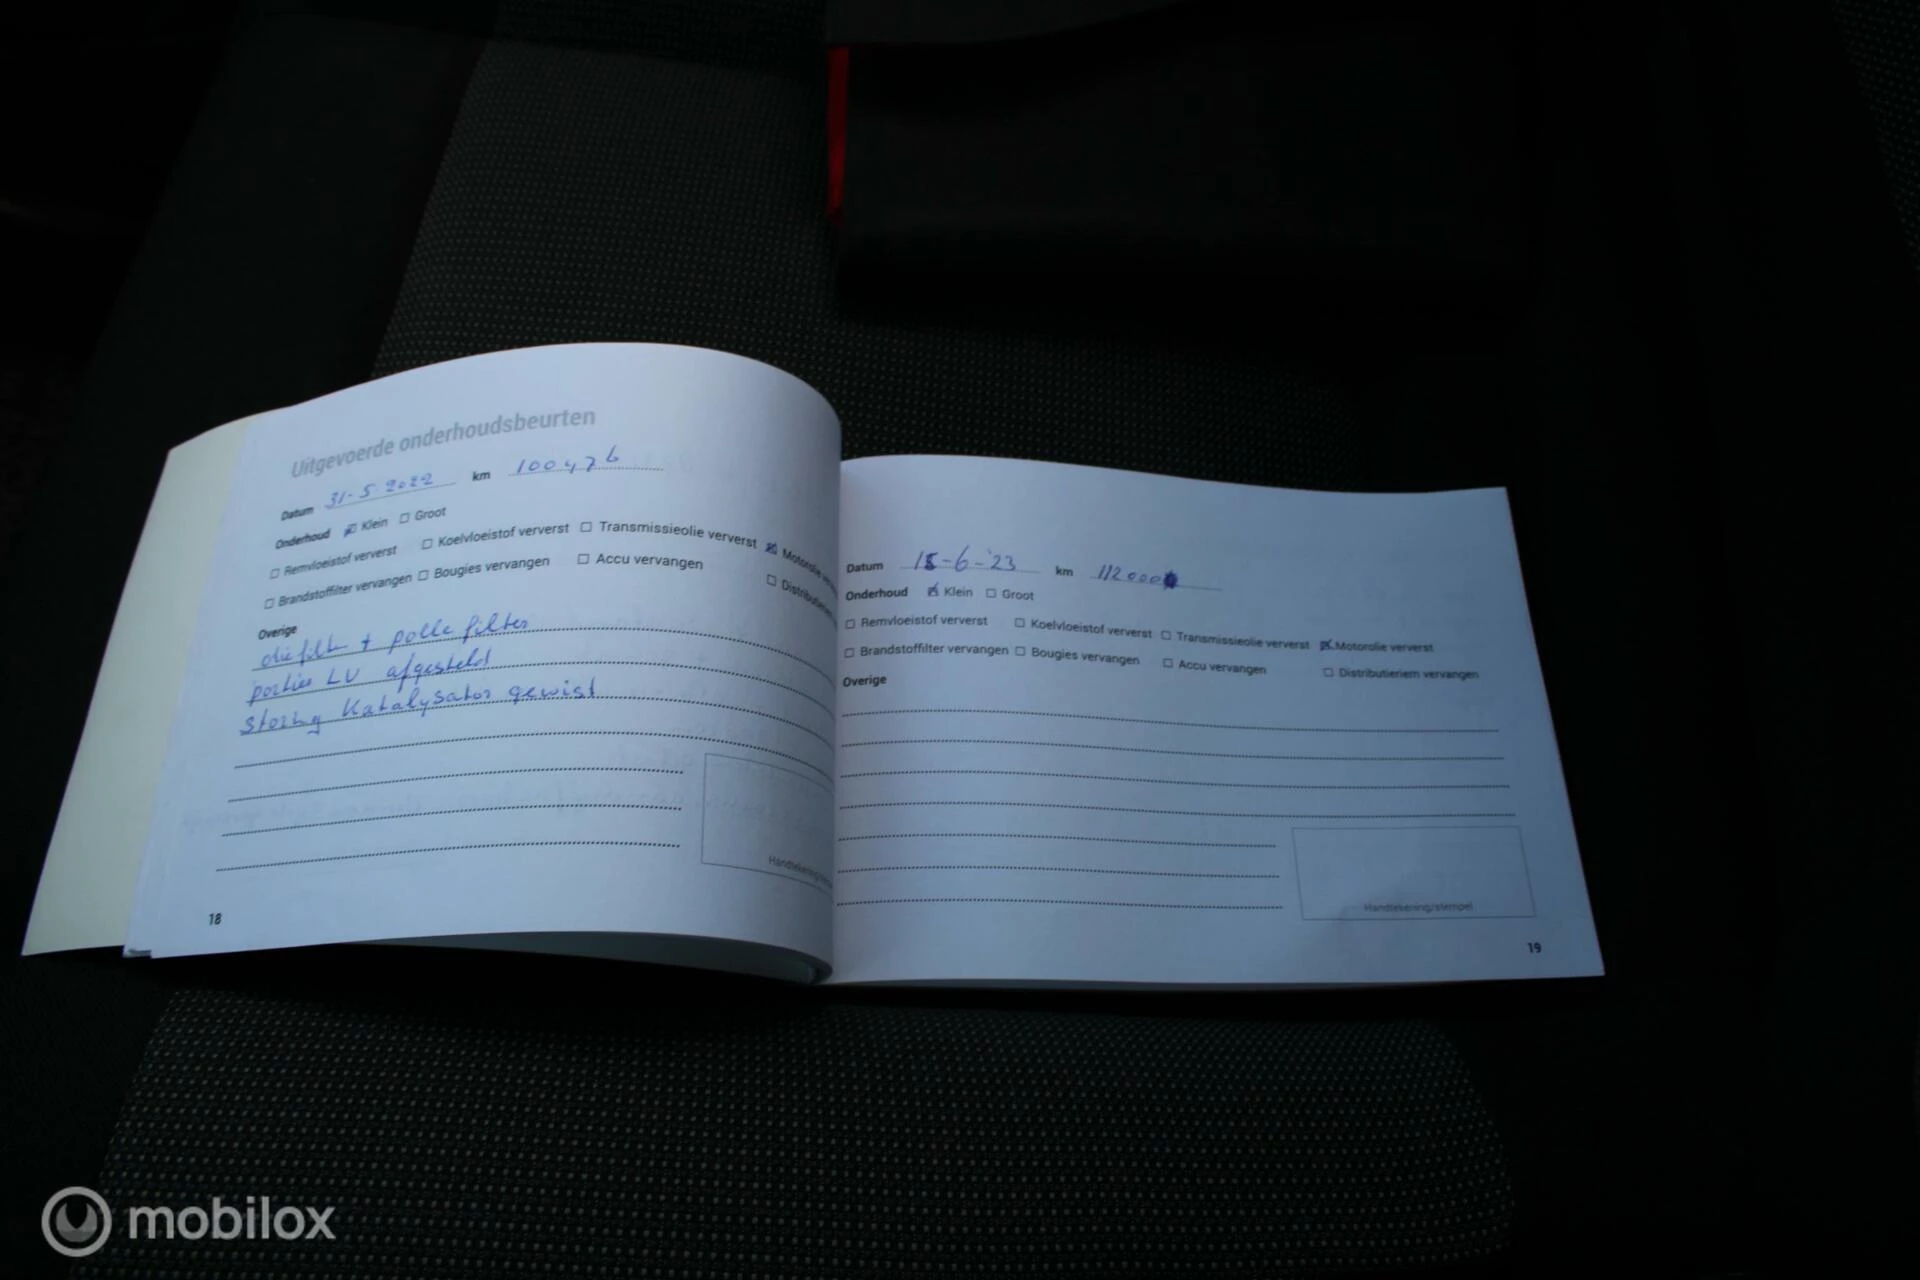 Uitgevoerde onderhoudsbeurten
Datum 31-5-2022 km 100476
Onderhoud Klein Groot
Remvloeistof ververst Koelvloeistof ververst Transmissieolie ververst Motorolie
Brandstoffilter vervangen Bougies vervangen Accu vervangen
Overige
oliefilter + polle filter
portier LV afgesteld
storing Katalysator gewist
18
Datum 15-6-'23 km 112000
Onderhoud Klein Groot
Remvloeistof ververst Koelvloeistof ververst Transmissieolie ververst Motorolie ververst
Brandstoffilter vervangen Bougies vervangen Accu vervangen Distributieriem vervangen
Overige
Handtekening/stempel
19
mobilox